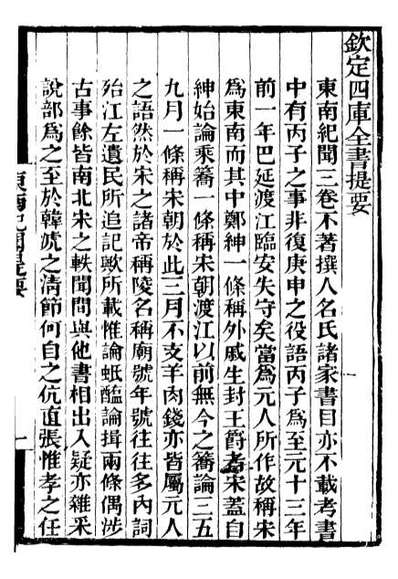 欽定四庫全書提要
東南紀聞三卷不著撰人名氏諸家書目亦不載考書
中有丙子之事非復庚申之役語丙子為至元十三年
前一年巴延渡江臨安失守矣當為元人所作故稱宋
為東南而其中鄭紳一條稱外戚生封王爵者宋蓋自
紳始論乘轎一條稱宋朝渡江以前無今之轎論三五
九月一條稱宋朝於此三月不支羊肉錢亦皆屬元人
之語然於宋之諸帝稱陵名稱廟號年號往往多內詞
殆江左遺民所追記歟所載惟論蚳醢論揖兩條偶涉
古事餘皆南北宋之軼聞間與他書相出入疑亦雜采
說部為之至於韓淲之清節何自之伉直張惟孝之任
東南紀聞提要
一